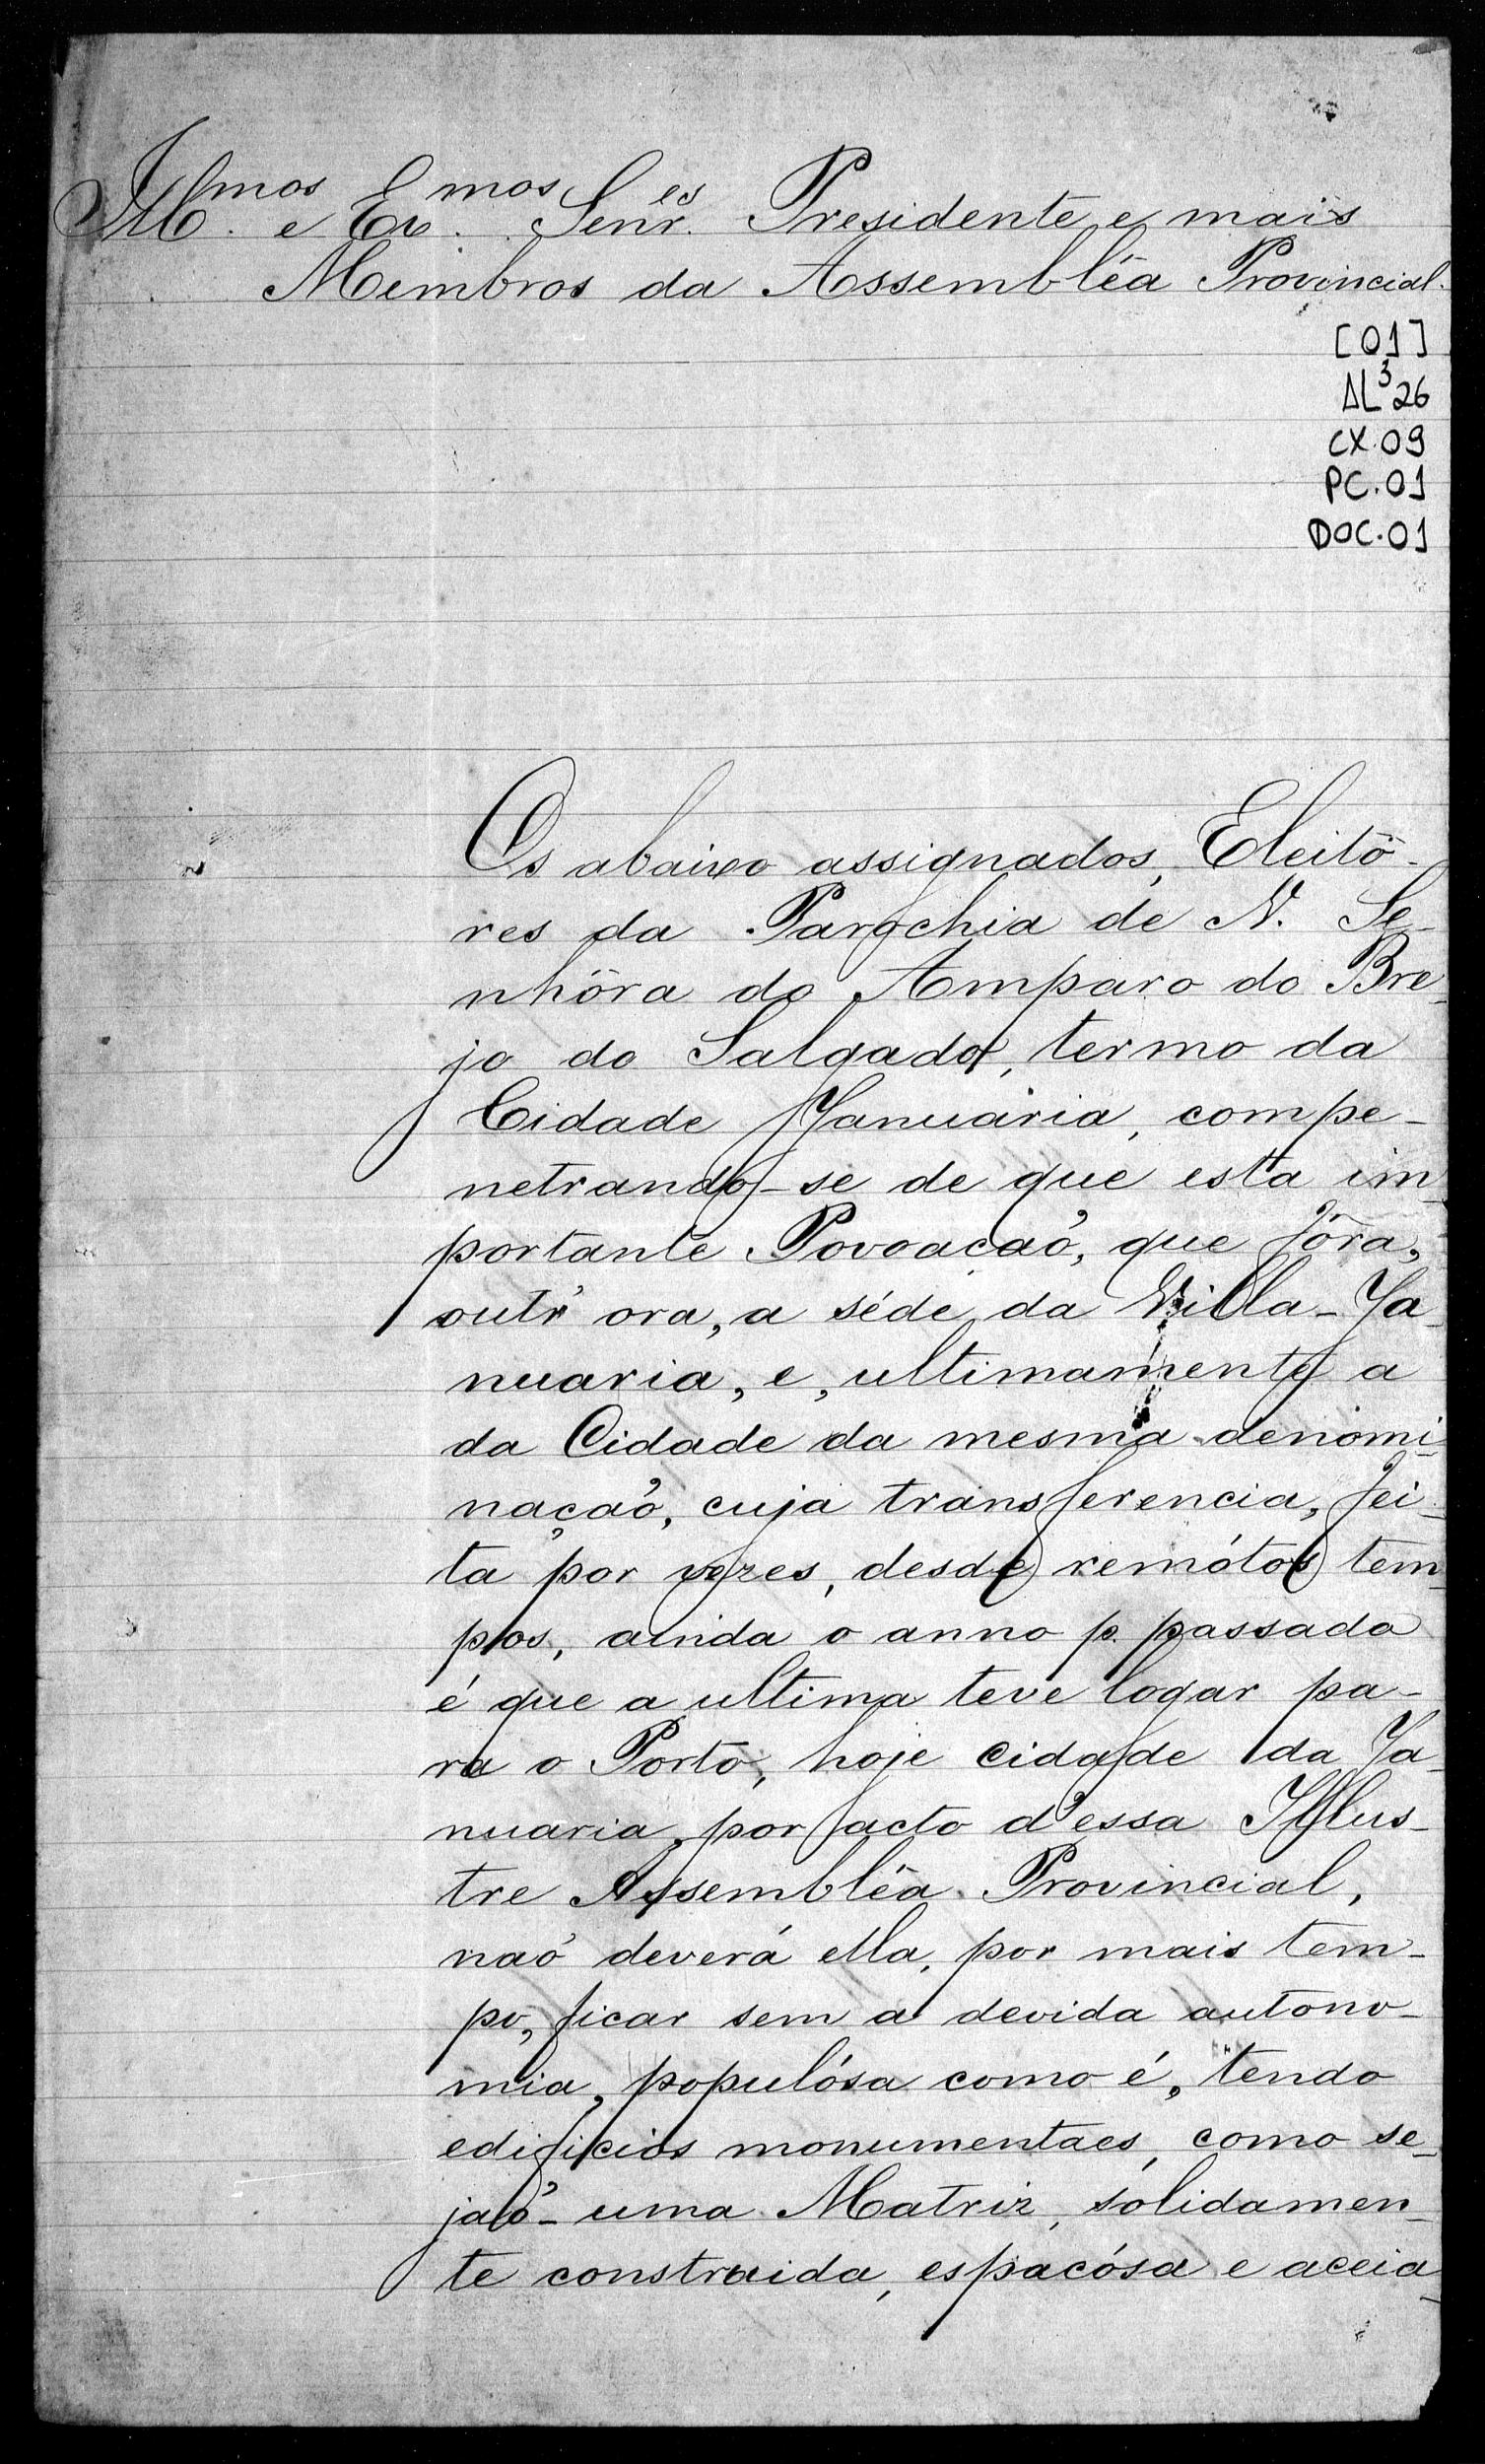 Illmos e Exmos Senres Presidente e mais
Membros da Assembléa Provincial.
[01]
AL³26
CX.09
PC.01
DOC.01
Os abaixo assignados, Eleitô-
res da Parochia de N. Se-
nhôra do Amparo do Bre-
jo do Salgado, termo da
Cidade Januária, compe-
netrando-se de que esta im-
portante Povoaçaõ, que fôra,
outr'ora, a séde da Villa-Ja-
nuaria, e, ultimamente a
da Cidade da mesma denomi-
naçaõ, cuja transferencia, fei-
ta por vezes, desde remótos tem-
pos, ainda o anno p. passado
é que a ultima teve logar pa-
ra o Porto, hoje cidade da Ja-
nuaria, por facto d'essa Illus-
tre Assembléa Provincial,
naõ deverá ella, por mais tem-
po, ficar sem a devida autono-
mia, populósa como é, tendo
edificios monumentaes, como se-
jaõ - uma Matriz, solidamen-
te construida, espaçósa e aceia-